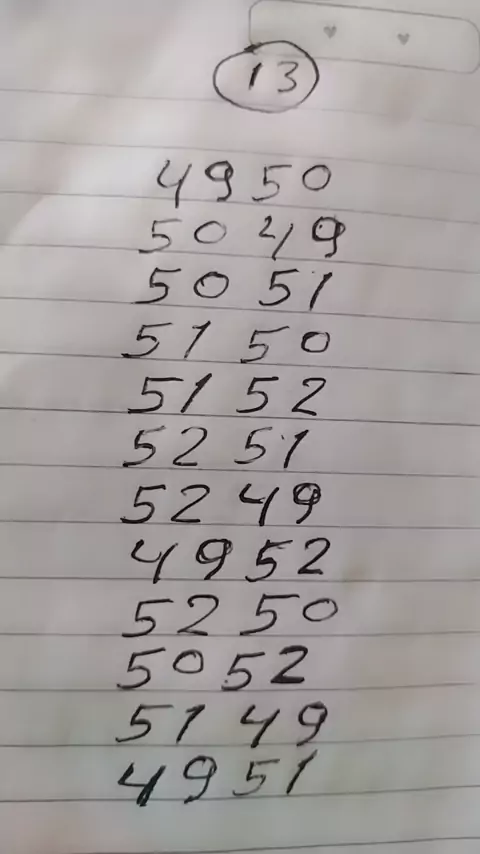 13
49 50
50 49
50 51
51 50
51 52
52 51
52 49
49 52
52 50
50 52
51 49
49 51